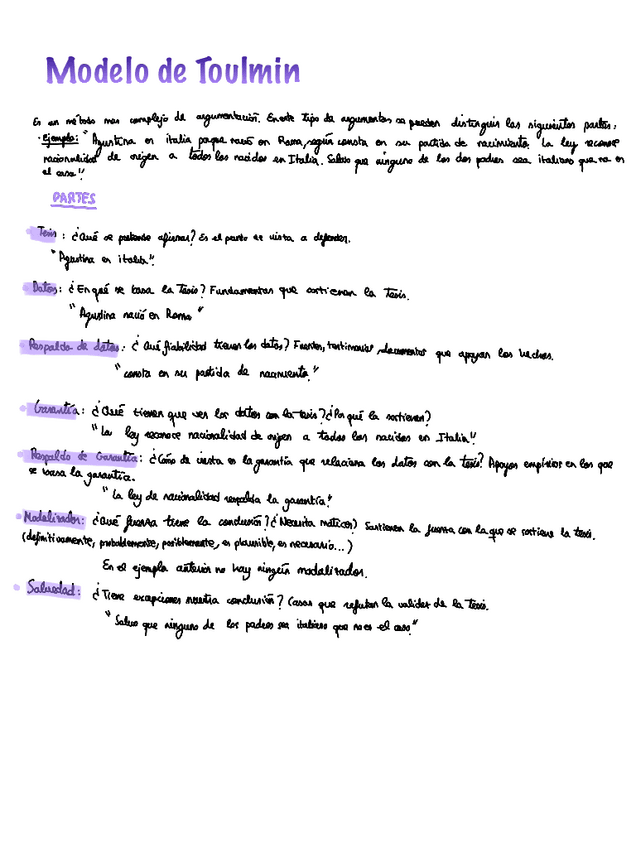 Modelo de Toulmin
Es un método mas complejo de argumentación. En este tipo de argumentos se pueden distinguir las siguientes partes:
· Ejemplo: "Agustina es italia porque nació en Roma, según consta en su partida de nacimiento. La ley reconoce
nacionalidad de origen a todos los nacidos en Italia. Salvo que ninguno de los dos padres sea italiano que no es
el caso".
PARTES
• Tesis: ¿Qué se pretende afirmar? Es el punto de vista a defender.
"Agustina es italia".
• Datos: ¿En qué se basa la Tesis? Fundamentos que sostienen la Tesis.
"Agustina nació en Roma"
• Respaldo de datos: ¿Qué fiabilidad tienen los datos? Fuentes, testimonios, documentos que apoyan los hechos.
"consta en su partida de nacimiento."
• Garantía: ¿Qué tienen que ver los datos con la tesis? ¿Por qué la sostienen?
"La ley reconoce nacionalidad de origen a todos los nacidos en Italia".
• Respaldo de Garantía: ¿Cómo de cierta es la garantía que relaciona los datos con la tesis? Apoyos empíricos en los que
se basa la garantía.
"La ley de nacionalidad respalda la garantía."
• Modalizador: ¿Qué fuerza tiene la conclusión? ¿Necesita matices? Sostienen la fuerza con la que se sostiene la tesis.
(definitivamente, probablemente, posiblemente, es plausible, es necesario...)
En el ejemplo anterior no hay ningún modalizador.
• Salvedad: ¿Tiene excepciones nuestra conclusión? Casos que refutan la validez de la Tesis.
"Salvo que ninguno de los padres sea italiano que no es el caso."